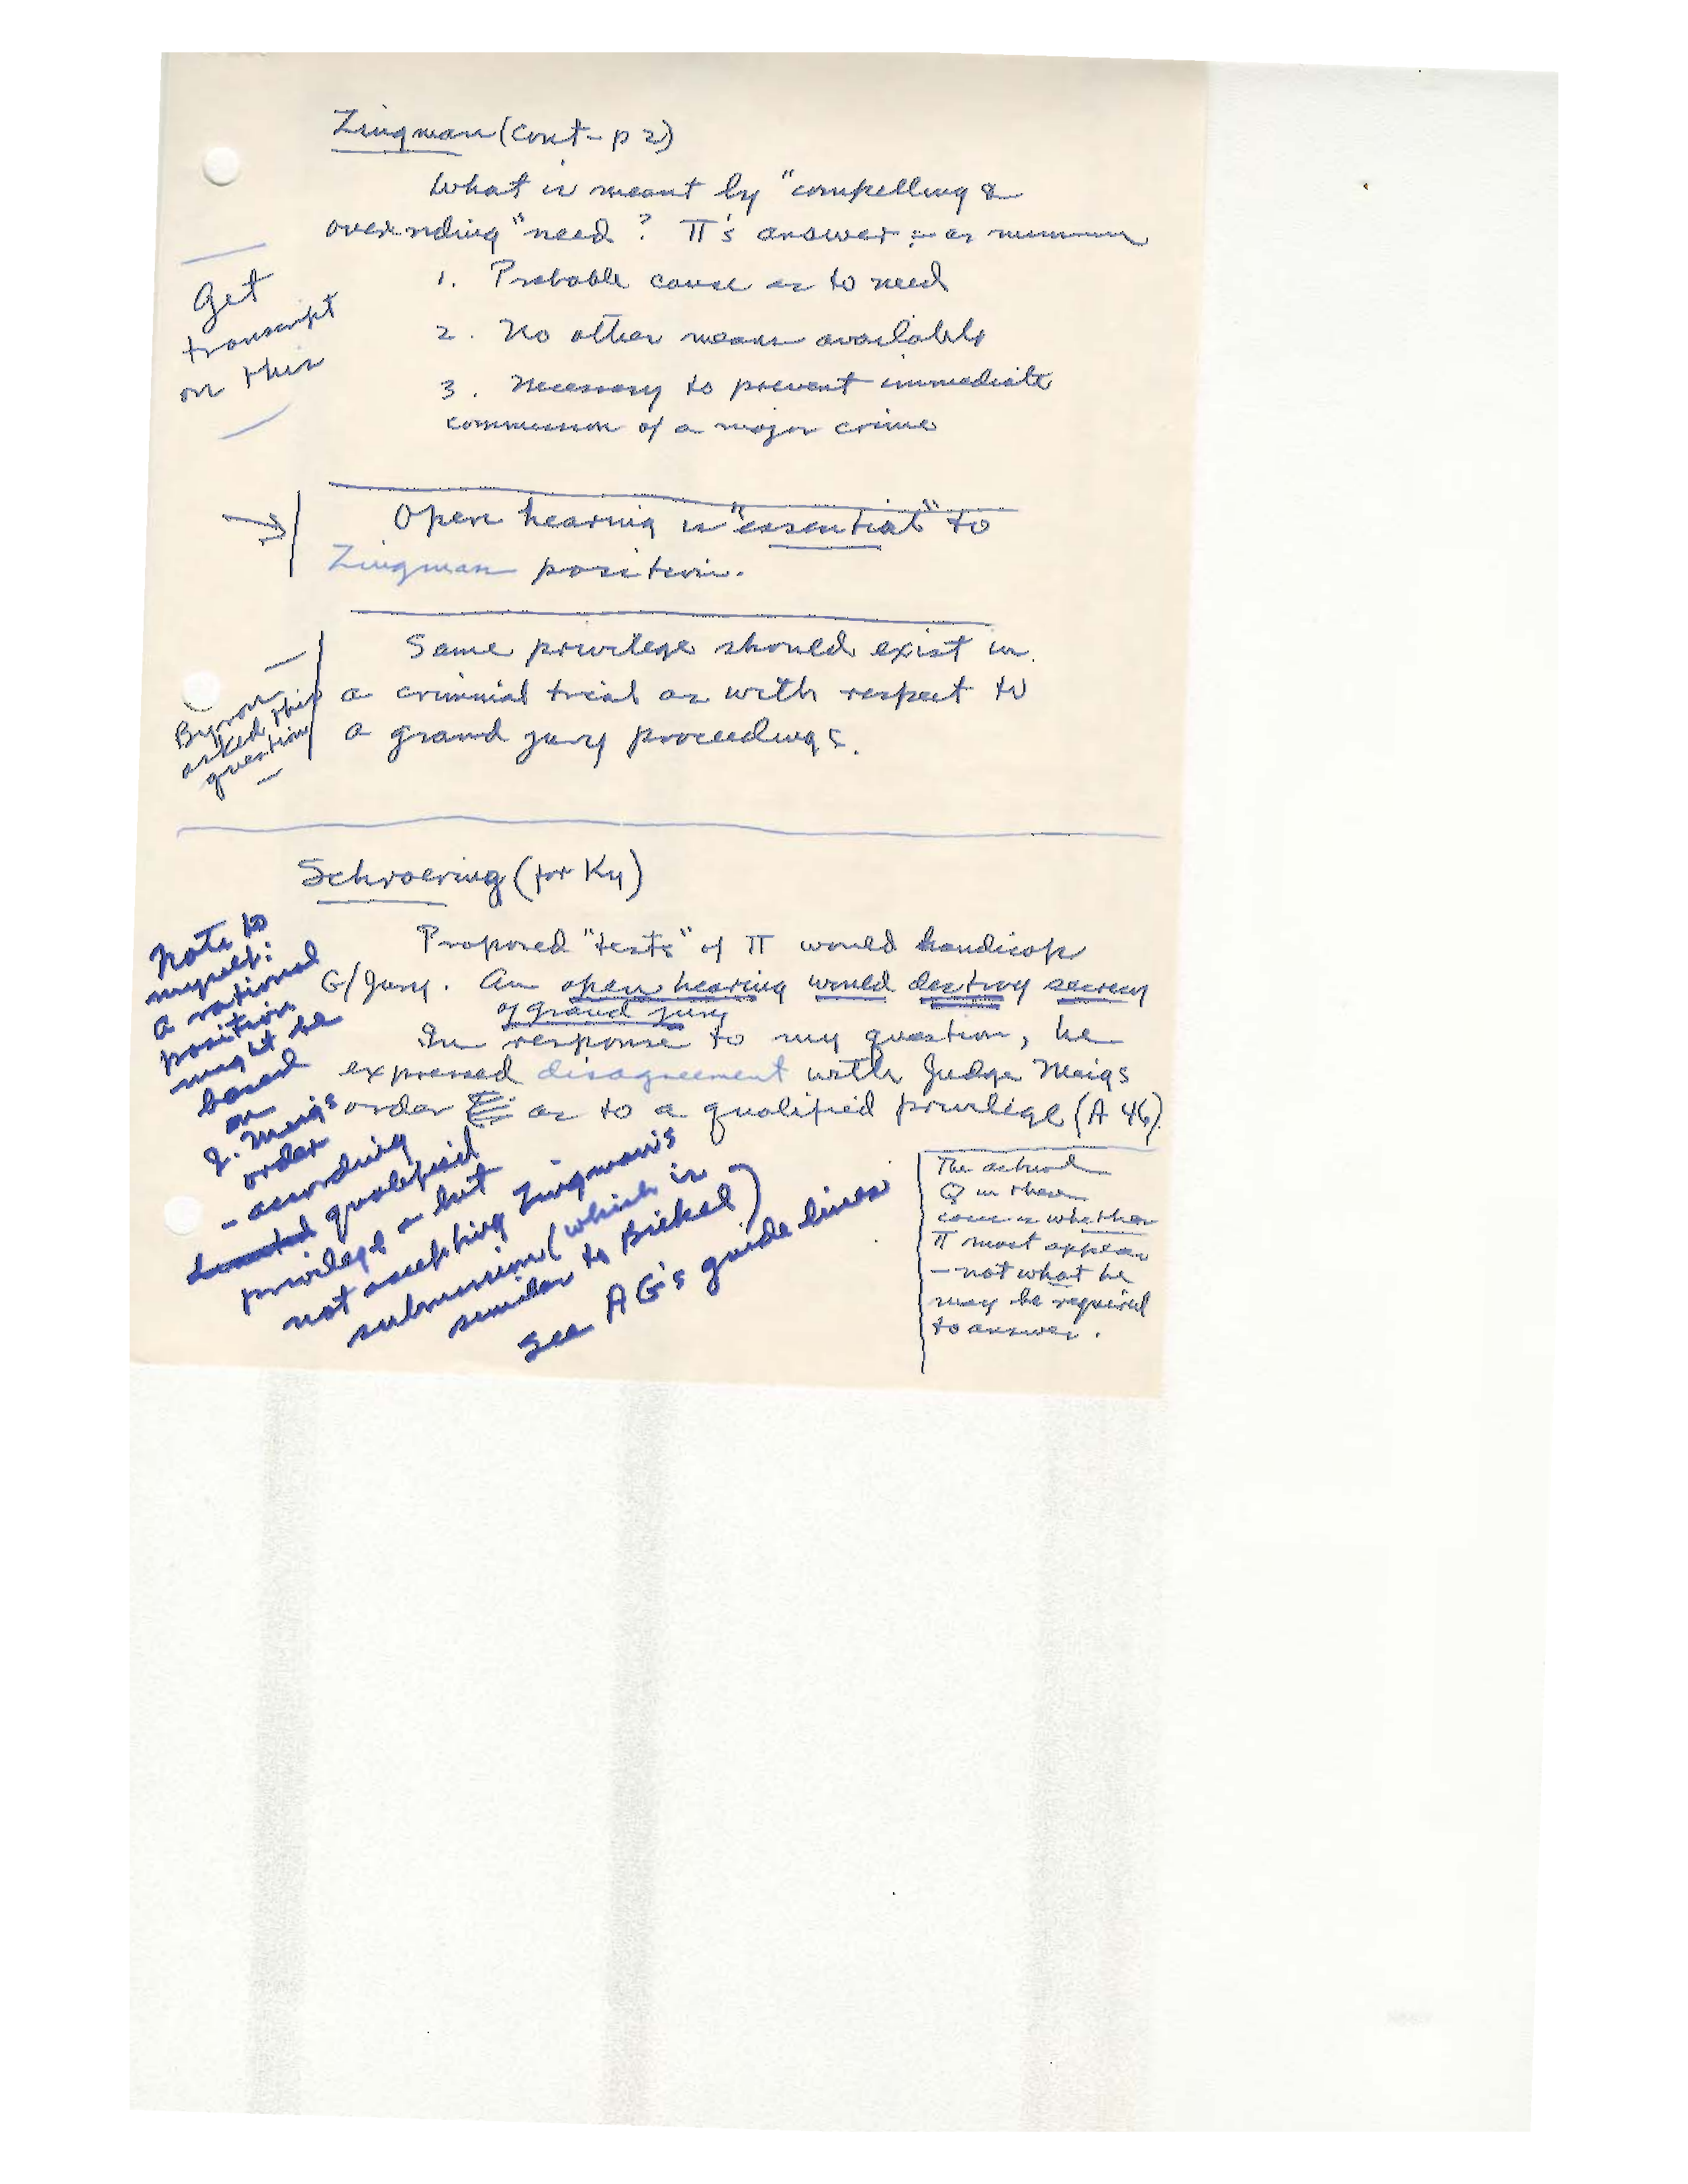 Zingman (cont - p 2)
What is meant by "compelling &
overriding" need? π's answer: - as minimum
Get
transcript
on this
1. Probable cause as to need
2. No other means available
3. Necessary to prevent immediate
commission of a major crime
Open hearing is "essential" to
Zingman position.
Same privilege should exist in
a criminal trial as with respect to
a grand jury proceedings.
Byron
asked this
question
Schroering (for Ky)
Proposed "tests" of π would handicap
G/Jury. An open hearing would destroy secrecy
of grand jury
In response to my question, he
expressed disagreement with Judge Meigs
order as to a qualified privilege (A 46)
Note to
myself:
a rational
position
might be
based
on
J. Meigs
order
- according
qualified
privilege - but
not accepting Zingman's
submission (which is
similar to Bickel)
See AG's guide lines
The actual
Q in these
cases is whether
π must appear
- not what he
may be required
to answer.